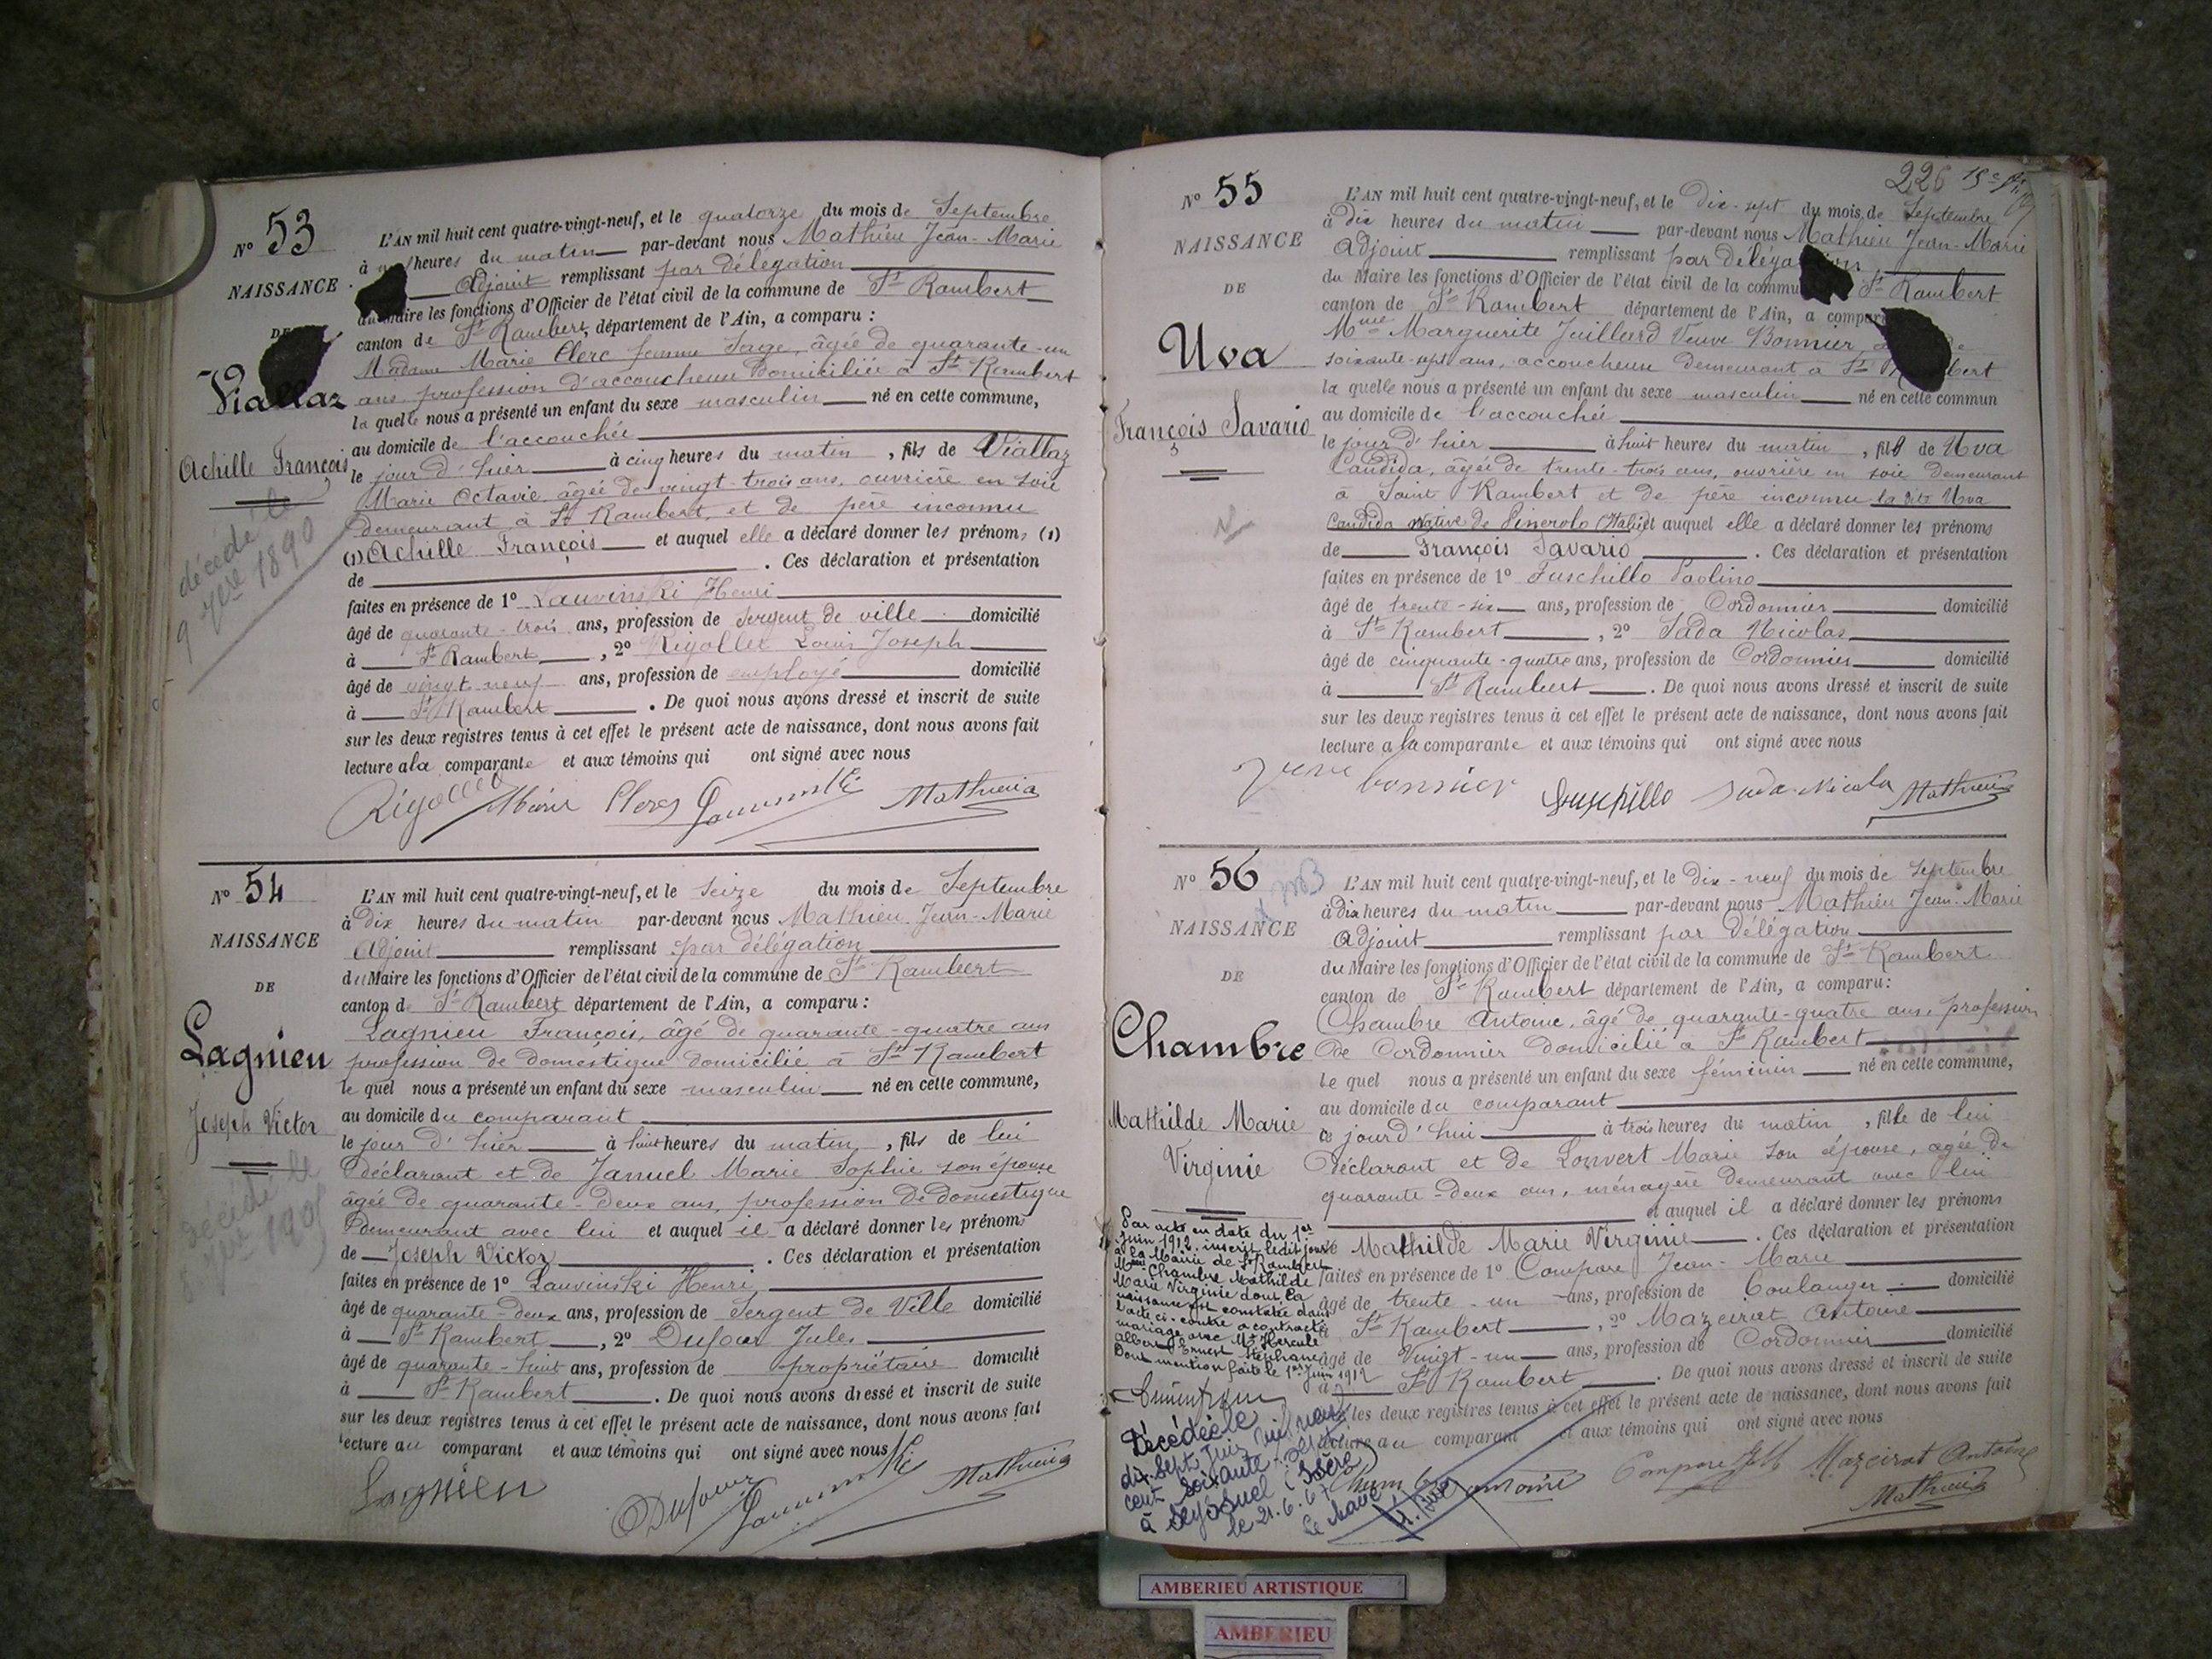 N° 53
NAISSANCE
DE
Viallaz
Achille François
décédé le
9 7bre 1890
L'AN mil huit cent quatre-vingt-neuf, et le quatorze du mois de Septembre
à heures du matin par-devant nous Mathieu Jean-Marie
Adjoint remplissant par délégation
du Maire les fonctions d'Officier de l'état civil de la commune de St Rambert
canton de St Rambert, département de l'Ain, a comparu :
Madame Marie Clerc femme Sage, âgée de quarante-un
ans, profession d'accoucheuse domiciliée à St Rambert
la quelle nous a présenté un enfant du sexe masculin né en cette commune,
au domicile de l'accouchée
le jour d'hier à cinq heures du matin, fils de Viallaz
Marie Octavie âgée de vingt-trois ans, ouvrière en soie
demeurant à St Rambert, et de père inconnu
(1) Achille François et auquel elle a déclaré donner les prénoms (1)
de . Ces déclaration et présentation
faites en présence de 1° Lauvinski Henri
âgé de quarante-trois ans, profession de Sergent de ville domicilié
à St Rambert, 2° Rigollet Louis Joseph
âgé de vingt-neuf ans, profession de employé domicilié
à St Rambert. De quoi nous avons dressé et inscrit de suite
sur les deux registres tenus à cet effet le présent acte de naissance, dont nous avons fait
lecture à la comparante et aux témoins qui ont signé avec nous
Rigollet Marie Clerc Lauvinski Mathieu
N° 54
NAISSANCE
DE
Lagnieu
Joseph Victor
décédé le
8 7bre 190
L'AN mil huit cent quatre-vingt-neuf, et le seize du mois de Septembre
à dix heures du matin par-devant nous Mathieu Jean-Marie
Adjoint remplissant par délégation
du Maire les fonctions d'Officier de l'état civil de la commune de St Rambert
canton de St Rambert département de l'Ain, a comparu :
Lagnieu François, âgé de quarante-quatre ans
profession de domestique domicilié à St Rambert
le quel nous a présenté un enfant du sexe masculin né en cette commune,
au domicile du comparant
le jour d'hier à huit heures du matin, fils de lui
déclarant et de Januel Marie Sophie son épouse
âgée de quarante-deux ans, profession de domestique
demeurant avec lui et auquel il a déclaré donner les prénoms
de Joseph Victor . Ces déclaration et présentation
faites en présence de 1° Lauvinski Henri
âgé de quarante-deux ans, profession de Sergent de Ville domicilié
à St Rambert, 2° Dufour Jules
âgé de quarante-huit ans, profession de propriétaire domicilié
à St Rambert. De quoi nous avons dressé et inscrit de suite
sur les deux registres tenus à cet effet le présent acte de naissance, dont nous avons fait
lecture au comparant et aux témoins qui ont signé avec nous
Lagnieu Dufour Lauvinski Mathieu
226
N° 55
NAISSANCE
DE
Uva
François Savario
L'AN mil huit cent quatre-vingt-neuf, et le dix-sept du mois de Septembre
à dix heures du matin par-devant nous Mathieu Jean-Marie
Adjoint remplissant par délégation
du Maire les fonctions d'Officier de l'état civil de la commune de St Rambert
canton de St Rambert département de l'Ain, a comparu
Mme Marguerite Juillard Veuve Bonnier
soixante-sept ans, accoucheuse demeurant à St Rambert
la quelle nous a présenté un enfant du sexe masculin né en cette commun
au domicile de l'accouchée
le jour d'hier à huit heures du matin, fils de Uva
Candida, âgée de trente-trois ans, ouvrière en soie demeurant
à Saint Rambert et de père inconnu la dite Uva
Candida native de Pinerolo (Italie) et auquel elle a déclaré donner les prénoms
de François Savario . Ces déclaration et présentation
faites en présence de 1° Fuschillo Paolino
âgé de trente-six ans, profession de Cordonnier domicilié
à St Rambert, 2° Sada Nicolas
âgé de cinquante-quatre ans, profession de Cordonnier domicilié
à St Rambert. De quoi nous avons dressé et inscrit de suite
sur les deux registres tenus à cet effet le présent acte de naissance, dont nous avons fait
lecture a la comparante et aux témoins qui ont signé avec nous
veuve bonnier Fuschillo Sada Nicola Mathieu
N° 56
NAISSANCE
DE
Chambre
Mathilde Marie
Virginie
Par acte en date du 1er
Juin 1912, inscrit ledit jour
à la Mairie de St Rambert
Mme Chambre Mathilde
Marie Virginie dont la
naissance est constatée dans
l'acte ci-contre a contracté
mariage avec Mr Hercule
Albert Ernest Stéphane
Dont mention faite le 1er Juin 1912
Décédée le
dix sept Juin mil neuf
cent soixante-sept
à Seyssuel (Isère)
le 21.6.67
Le Maire
L'AN mil huit cent quatre-vingt-neuf, et le dix-neuf du mois de Septembre
à dix heures du matin par-devant nous Mathieu Jean-Marie
Adjoint remplissant par délégation
du Maire les fonctions d'Officier de l'état civil de la commune de St Rambert
canton de St Rambert département de l'Ain, a comparu :
Chambre Antoine, âgé de quarante-quatre ans, profession
de Cordonnier domicilié à St Rambert
le quel nous a présenté un enfant du sexe féminin né en cette commune,
au domicile du comparant
ce jourd'hui à trois heures du matin, fille de lui
déclarant et de Louvert Marie son épouse, âgée de
quarante-deux ans, ménagère demeurant avec lui
et auquel il a déclaré donner les prénoms
de Mathilde Marie Virginie . Ces déclaration et présentation
faites en présence de 1° Compare Jean-Marie
âgé de trente-un ans, profession de boulanger domicilié
à St Rambert, 2° Mazeirat Antoine
âgé de vingt-un ans, profession de Cordonnier domicilié
à St Rambert. De quoi nous avons dressé et inscrit de suite
sur les deux registres tenus à cet effet le présent acte de naissance, dont nous avons fait
lecture au comparant et aux témoins qui ont signé avec nous
Chambre antoine Compare Mazeirat Antoine
Mathieu
AMBERIEU ARTISTIQUE
AMBERIEU